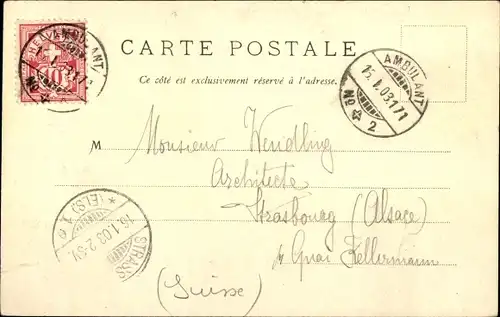 HELVETIA
10
AMBULANT
CARTE POSTALE
Ce côté est exclusivement réservé à l'adresse.
AMBULANT
15.I.03.171
No 2
M
Monsieur Wendling
Architecte
Strasbourg (Alsace)
Quai Kellermann
(Suisse)
STRASS
(ELS)
16.1.03.2-3V.
1 e